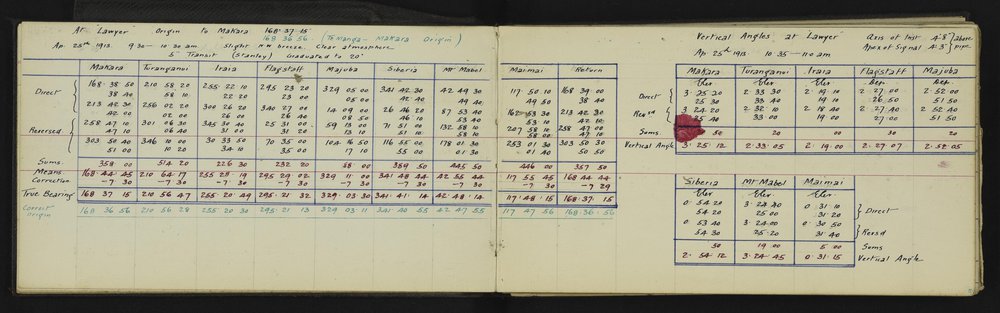 At Lawyer Origin to Makara 168·37·15
168 36 56 (Te Wanga - Makara Origin)
Ap. 25th 1913. 9·30 - 10·30 am Slight NW breeze. Clear atmosphere
5" Transit (Stanley) Graduated to 20"
Makara Turanganui Iraia Flagstaff Majuba Siberia Mt Mabel Maimai Return
Direct 168·38 50 210 58 20 255·22 10 295 23 20 329 05 00 341 42 30 42 49 30 117 50 10 168 39 00
38 40 58 10 22 20 23 00 05 00 42 40 49 40 49 50 38 40
213 42 30 256 02 20 300 26 20 340 27 00 14 09 00 26 46 20 87 53 40 162 53 30 213 42 30
42 00 02 00 26 00 26 40 08 50 46 10 53 40 53 10 42 10
Reversed 258 47 10 301 06 30 345 30 40 25 31 00 59 13 00 71 51 00 132 58 10 207 58 10 258 47 00
47 10 06 40 31 00 31 20 13 10 51 10 58 10 58 00 47 10
303 50 40 346 10 00 30 33 50 70 35 00 104 16 50 116 55 00 178 01 30 253 01 30 303 50 30
51 00 10 20 34 10 35 00 17 10 55 00 01 30 01 40 50 50
Sums 358 00 514 20 226 30 232 20 88 00 359 50 445 50 446 00 357 50
Means 168·44·45 210 64·17 255 28 19 295 29 02 329 11 00 341 48 44 42 55 44 117 55 45 168 44 44
Correction -7 30 -7 30 -7 30 -7 30 -7 30 -7 30 -7 30 -7 30 -7 29
True Bearing 168 37 15 210 56 47 255 20 49 295·21 32 329·03·30 341·41·14 42·48·14 117·48·15 168·37·15
Correct Origin 168 36 56 210 56 28 255 20 30 295·21 13 329 03·11 341 40 55 42 47 55 117 47 56 168·36·56
Vertical Angles at Lawyer Axis of Inst 4·8" above
Apex of Signal 4·3" pipe
Ap. 25th 1913 10·35 - 11·0 am
Makara Turanganui Iraia Flagstaff Majuba
Elev Elev Elev Dep. Dep.
Direct 3·25 20 2·33 30 2·19 10 2·27·00 2·52 00
25 30 33 40 19 10 26·50 51 50
Revsd 3·24 20 2·32 10 2·18 40 2·27 40 2·52 40
25 40 33 00 19 00 27 00 51 50
Sums 50 20 00 30 20
Vertical Angle 3·25·12 2·33·05 2·19·00 2·27·07 2·52·05
Siberia Mt Mabel Maimai
Elev Elev Elev
0·54 20 3·24 40 0·31 10 Direct
54 20 25 00 31·20
0 53 40 3·24 00 0·30 50 Revsd
54 30 25·20 31 40
50 19 00 5 00 Sums
2·54·12 3·24·45 0·31·15 Vertical Angle